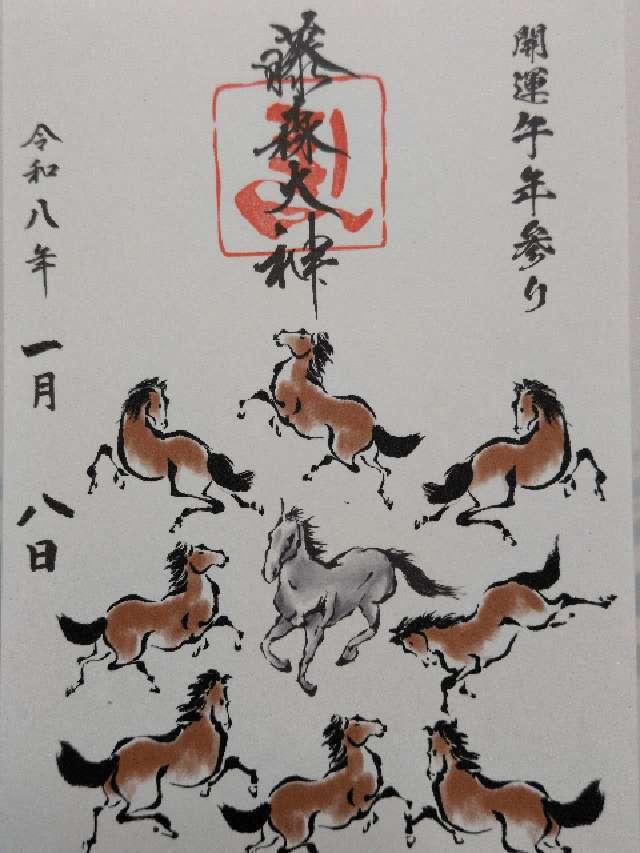 開運午年参り
藤森大神
令和八年 一月 八日